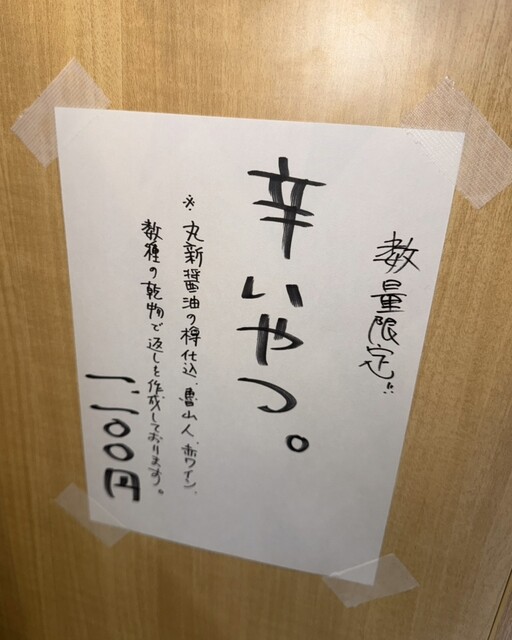 数量限定!!
辛いやつ。
※丸新醤油の樽仕込、魯山人、赤ワイン、
数種の乾物で返しを作成しております。
一、一〇〇円